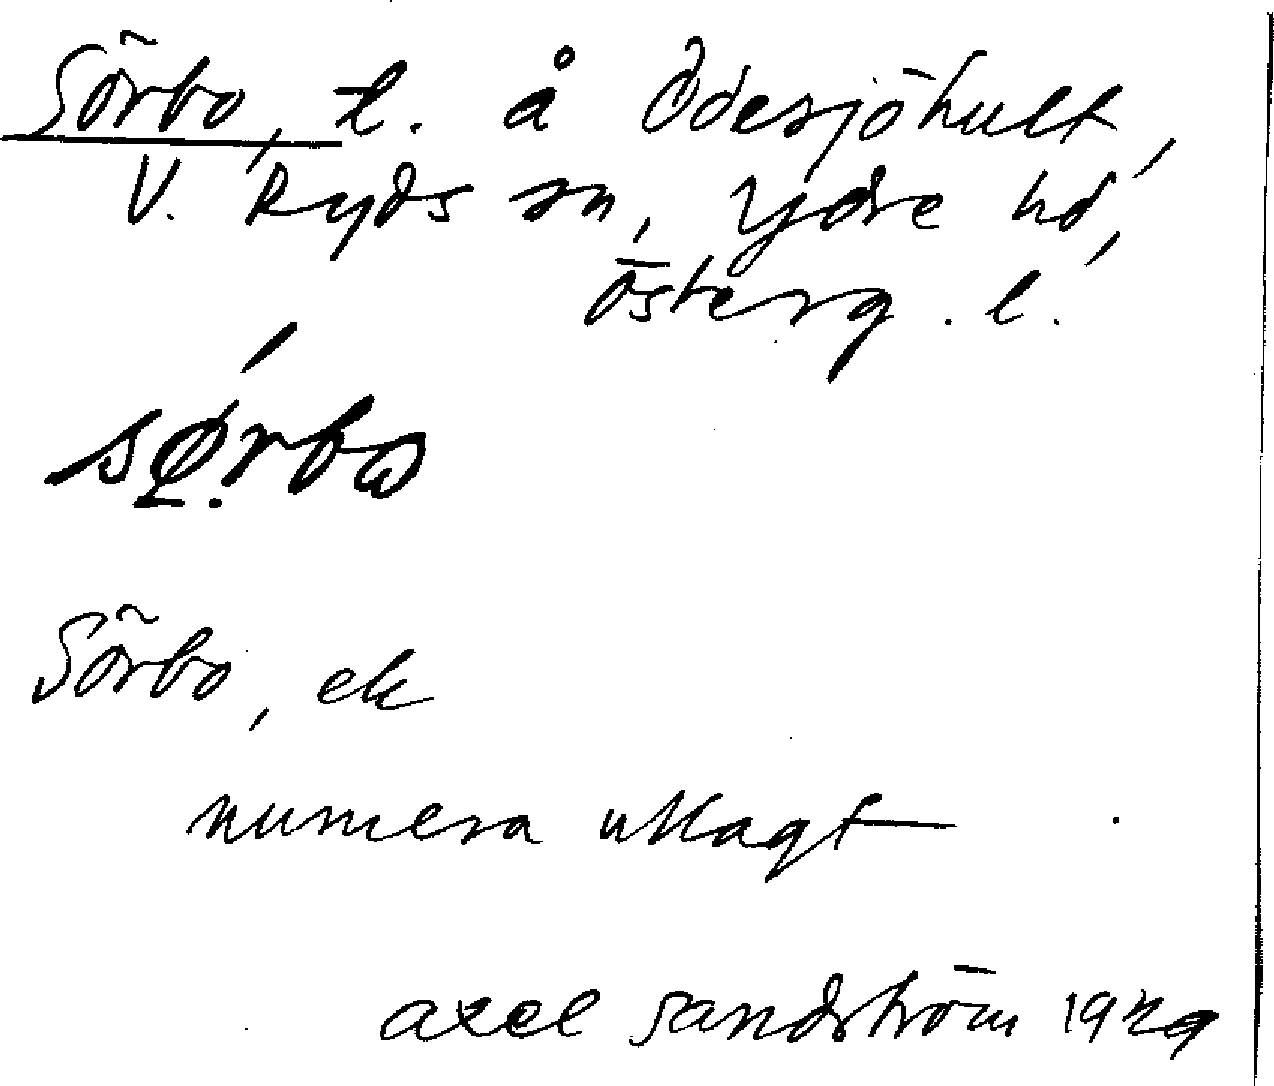 Sörbo, t. å Ödesjöhult,
V. Ryds sn, Ydre hd,
Österg. l.
sørbω
Sörbo, ek
numera utlagt
axel sandström 1929